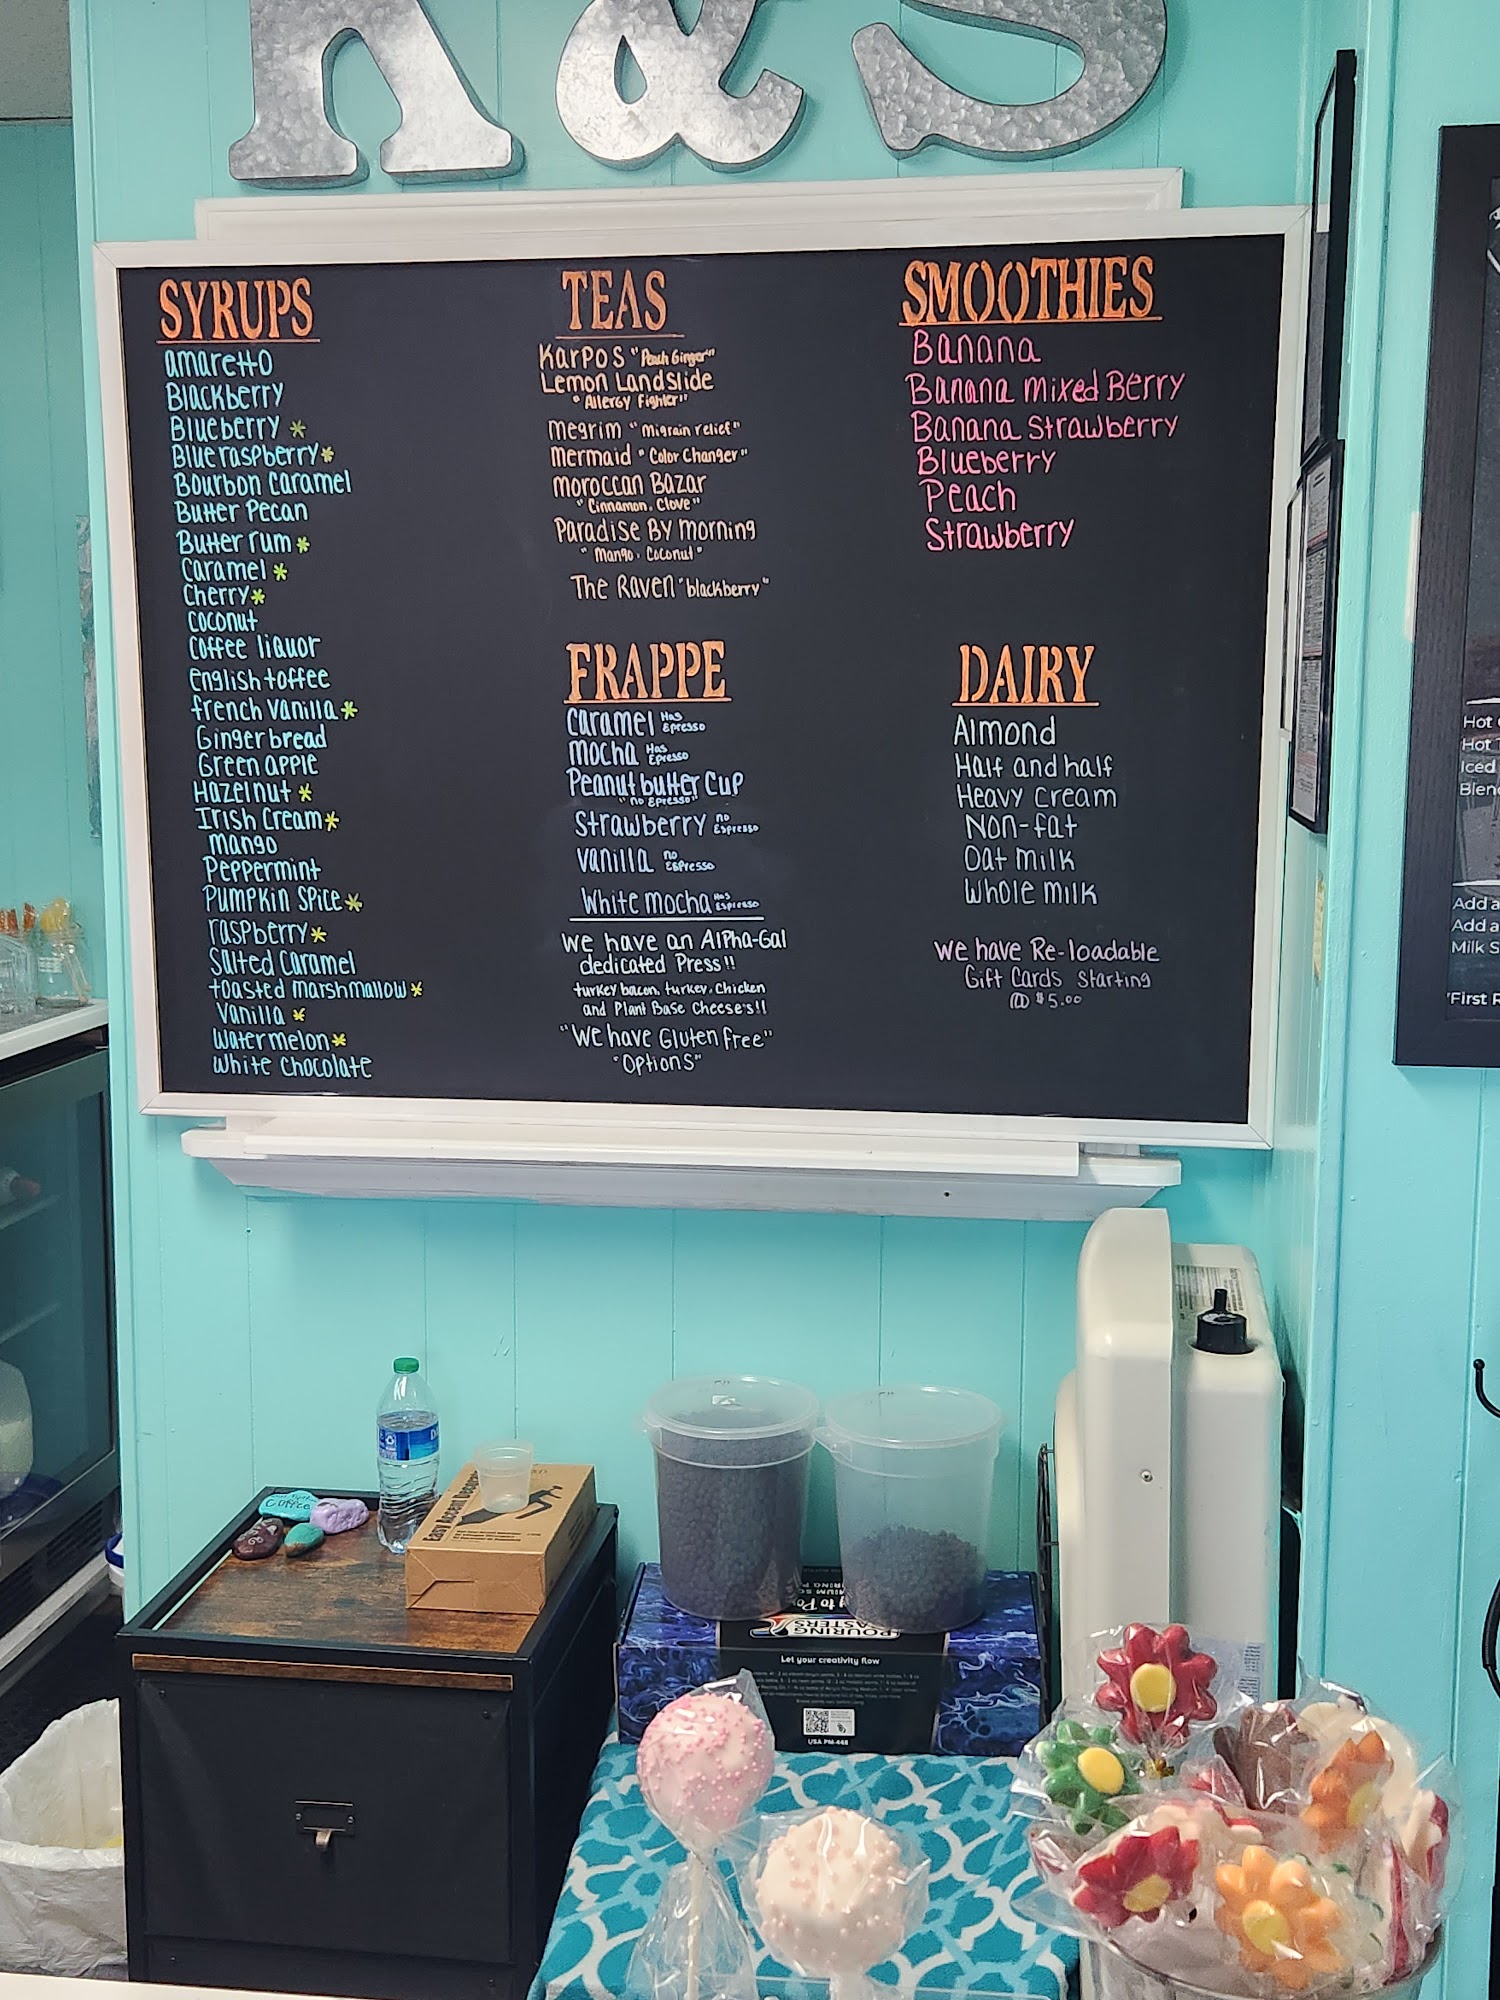 R&S
SYRUPS
amaretto
Blackberry
Blueberry *
Blue raspberry *
Bourbon Caramel
Butter Pecan
Butter rum *
Caramel *
Cherry *
Coconut
Coffee liquor
english toffee
french vanilla *
Gingerbread
Green apple
Hazelnut *
Irish Cream *
mango
Peppermint
Pumpkin Spice *
raspberry *
Salted Caramel
toasted marshmallow *
Vanilla *
Watermelon *
White Chocolate
TEAS
Karpos "Peach Ginger"
Lemon Landslide
"Allergy Fighter"
megrim "migrain relief"
mermaid "Color Changer"
moroccan Bazar
"Cinnamon, Clove"
Paradise By morning
"Mango, Coconut"
The Raven "blackberry"
FRAPPE
Caramel Has Epresso
mocha Has Epresso
Peanut butter Cup
"no Epresso"
Strawberry no Espresso
Vanilla no Espresso
White mocha Has Espresso
We have an Alpha-Gal
dedicated Press!!
turkey bacon, turkey, Chicken
and Plant Base Cheese's!!
"We have Gluten free"
"Options"
SMOOTHIES
Banana
Banana mixed Berry
Banana Strawberry
Blueberry
Peach
Strawberry
DAIRY
Almond
Half and half
Heavy cream
Non-fat
Oat milk
Whole milk
We have Re-loadable
Gift Cards Starting
@ $5.00
Hot
Hot
Iced
Add a
Add a
Milk S
"First R
Coffee
POURING
MASTERS
Let your creativity flow
USA PM-448